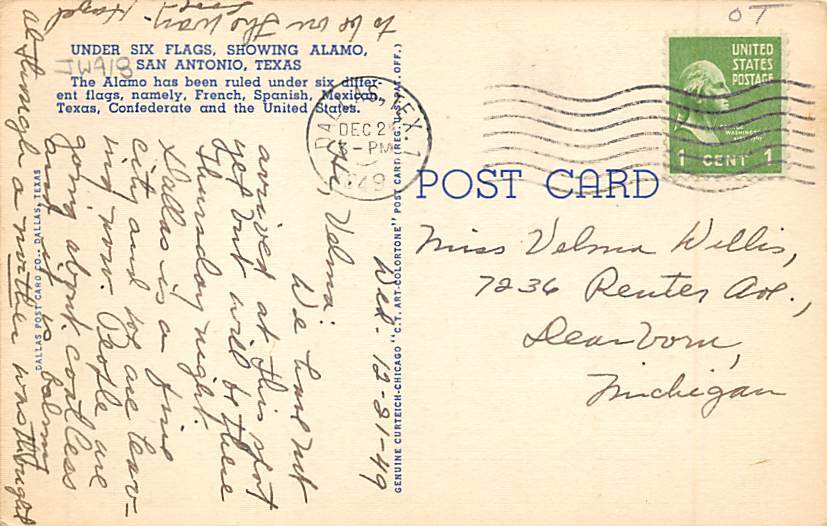 UNDER SIX FLAGS, SHOWING ALAMO,
SAN ANTONIO, TEXAS
The Alamo has been ruled under six differ-
ent flags, namely, French, Spanish, Mexican,
Texas, Confederate and the United States.
JW918
OT
DALLAS, TEX. 1
DEC 2
3 - PM
1949
UNITED
STATES
POSTAGE
WASHINGTON
1 CENT 1
POST CARD
DALLAS POST CARD CO., DALLAS, TEXAS
GENUINE CURTEICH-CHICAGO "C.T. ART-COLORTONE" POST CARD (REG. U.S. PAT. OFF.)
Wed. 12-21-49
Hi, Velma:
We have not
arrived at this spot
yet but will be there
Thursday night.
Dallas is a fine
city and we are leav-
ing now. People are
going about coatless
and it is balmy
although a norther was thought
to be on the way.
Love, Hazel
Miss Velma Willis,
7236 Reuter Ave.,
Dearborn,
Michigan